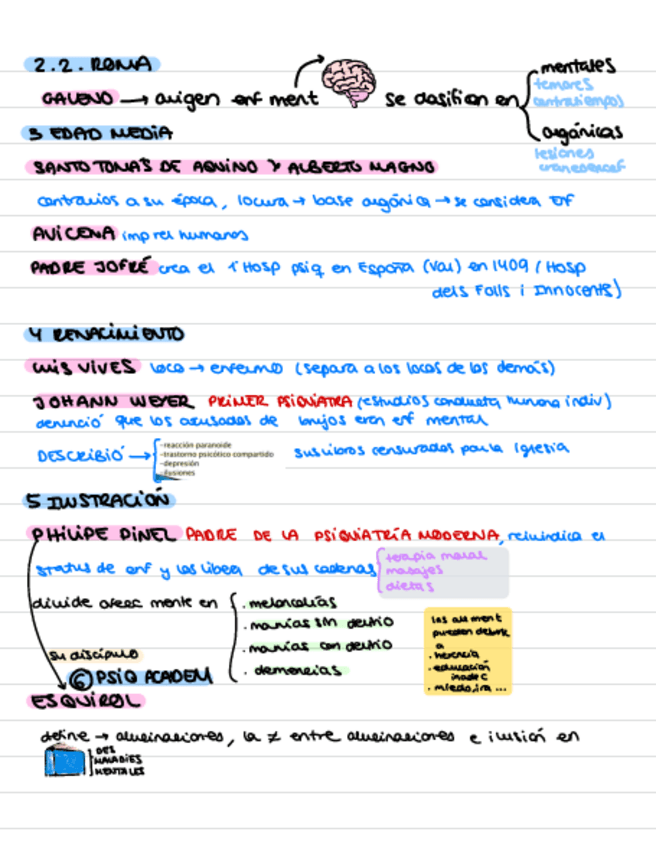 2.2. ROMA
GALENO → origen enf ment se clasifican en
mentales
temores
contratiempos
orgánicas
lesiones
craneoencef
3 EDAD MEDIA
SANTO TOMÁS DE AQUINO Y ALBERTO MAGNO
contrarios a su época, locura → base orgánica → se considera Enf
AVICENA imp rel humanos
PADRE JOFRÉ crea el 1º Hosp psiq en España (Val) en 1409 (Hosp
dels Folls i Innocents)
4 RENACIMIENTO
LUIS VIVES loco → enfermo (separa a los locos de los demás)
JOHANN WEYER PRIMER PSIQUIATRA (estudios conducta humana indiv)
denunció que los acusados de brujos eran enf mental
DESCRIBIÓ →
-reacción paranoide
-trastorno psicótico compartido
-depresión
-ilusiones
sus libros censurados por la Iglesia
5 ILUSTRACIÓN
PHILIPE PINEL PADRE DE LA PSIQUIATRÍA MODERNA, reivindica el
status de enf y los libera de sus cadenas
terapia moral
masajes
dietas
divide afecc mente en
. melancolías
. manías sin delirio
. manías con delirio
. demencias
las alt ment
pueden deberse
a
. herencia
. educación
inadec
. miedo, ira ...
su discípulo
© PSIQ ACADEM
ESQUIROL
define → alucinaciones, la ≠ entre alucinaciones e ilusión en
DES
MALADIES
MENTALES